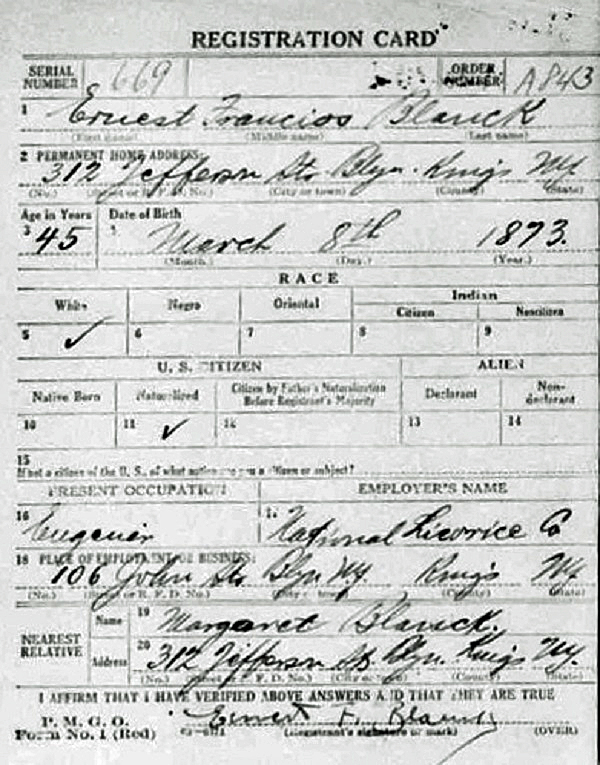 REGISTRATION CARD
SERIAL NUMBER 669 ORDER NUMBER A843
1 Ernest Francios Blanck
(First name) (Middle name) (Last name)
2 PERMANENT HOME ADDRESS:
312 Jefferson St. Blyn. Kings NY.
(No.) (Street or R. F. D. No.) (City or town) (County) (State)
Age in Years Date of Birth
3 45 March 8th 1873.
(Month.) (Day.) (Year.)
RACE
White Negro Oriental Indian
Citizen Noncitizen
5 ✓ 6 7 8 9
U. S. CITIZEN ALIEN
Native Born Naturalized Citizen by Father's Naturalization Before Registrant's Majority Declarant Non-declarant
10 11 ✓ 12 13 14
15
If not a citizen of the U. S., of what nation are you a citizen or subject?
PRESENT OCCUPATION EMPLOYER'S NAME
16 Engenier National Licorice Co
18 PLACE OF EMPLOYMENT OR BUSINESS:
106 John St. Blyn NY Kings NY.
(No.) (Street or R. F. D. No.) (City or town) (County) (State)
NEAREST RELATIVE Name 19 Margaret Blanck.
Address 20 312 Jefferson St. Blyn. Kings NY.
(No.) (Street or R. F. D. No.) (City or town) (County) (State)
I AFFIRM THAT I HAVE VERIFIED ABOVE ANSWERS AND THAT THEY ARE TRUE
P. M. G. O.
Form No. 1 (Red) Ernest F. Blanck
(Registrant's signature or mark) (OVER)